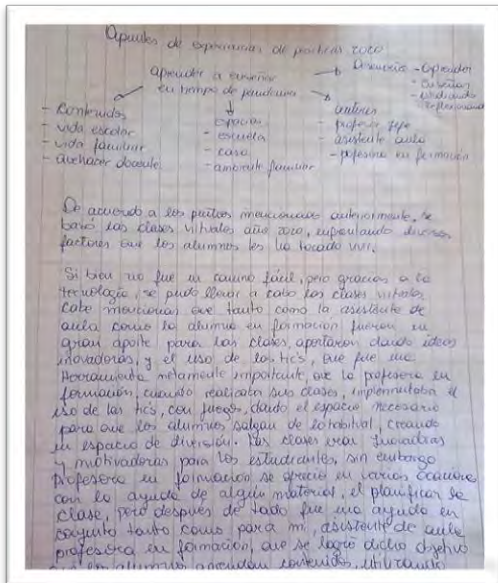 Apuntes de experiencias de practicas 2020
Docencia - Aprender
aprender a enseñar - Enseñar
en tiempo de pandemia - reflexionando
- Contenidos espacios actores
- vida escolar - escuela - profesor jefe
- vida familiar - casa - asistente aula
- quehacer docente - ambiente familiar - profesora en formación
De acuerdo a los puntos mencionados anteriormente, se
basó las clases virtuales año 2020, enfrentando diversos
factores que los alumnos les ha tocado vivir.
Si bien no fue un camino fácil, pero gracias a la
tecnología, se pudo llevar a cabo las clases virtuales
Cabe mencionar que tanto como la asistente de
aula como la alumna en formación fueron un
gran aporte para las clases, aportaron dando ideas
inovadoras, y el uso de las tic's, que fue una
Herramienta netamente importante, que la profesora en
formación, cuando realizaba sus clases, implementaba el
uso de las tic's, con juegos, dando el espacio necesario
para que los alumnos salgan de lo habitual, creando
un espacio de diversión. Las clases eran
y motivadoras para los estudiantes, sin embargo
profesora en formación se apreció en varias ocasiones
con la ayuda de algún material, el planificar la
clase, pero después de todo fue una ayuda en
conjunto tanto como para mi, asistente de aula
profesora en formación, que se logró dicho objetivo
que los alumnos aprendan contenidos, utilizando